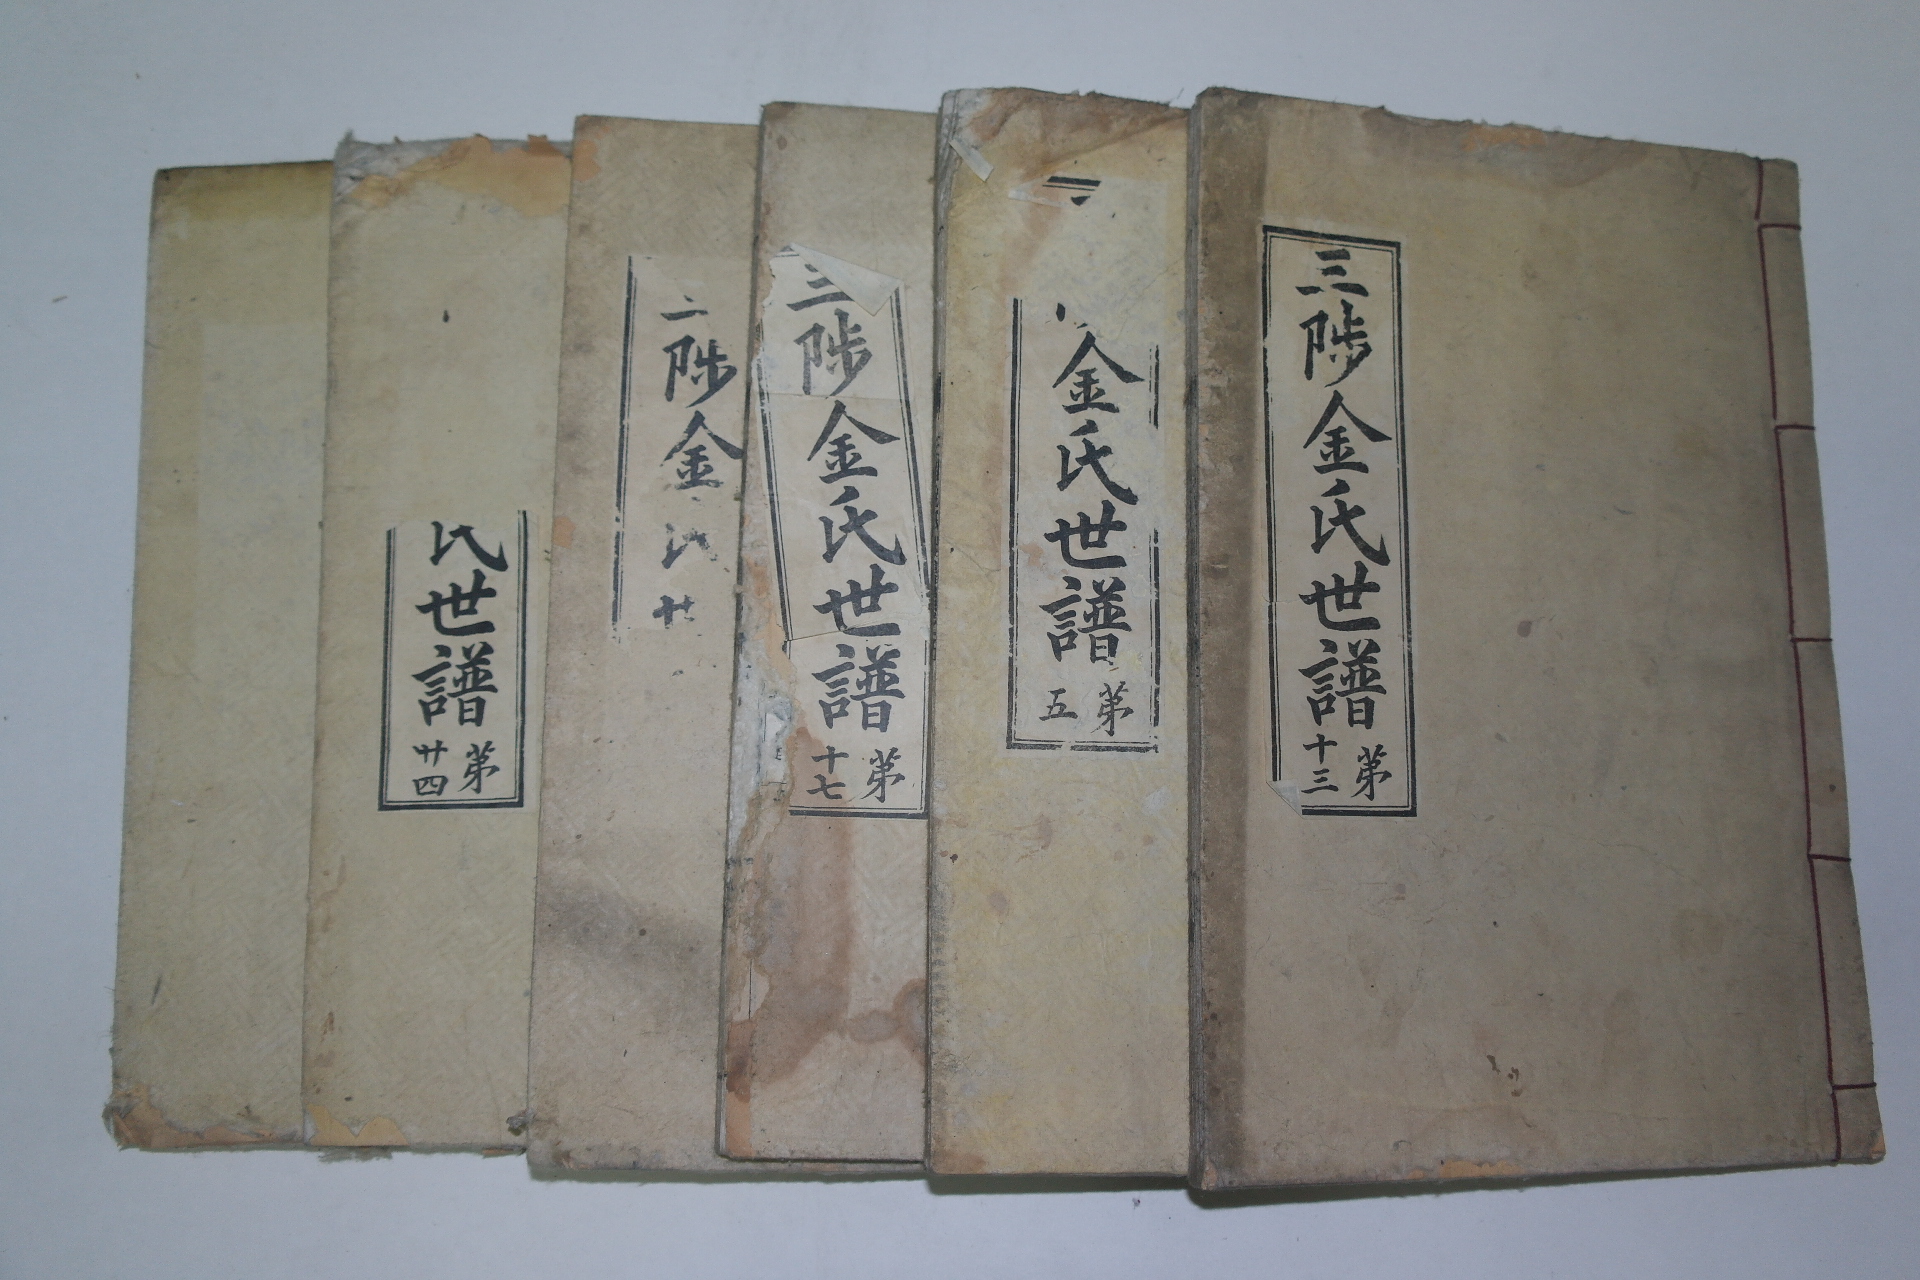 三陟金氏世譜
第
十三
金氏世譜
第
五
三陟金氏世譜
第
十七
陟金
氏世譜
第
廿四